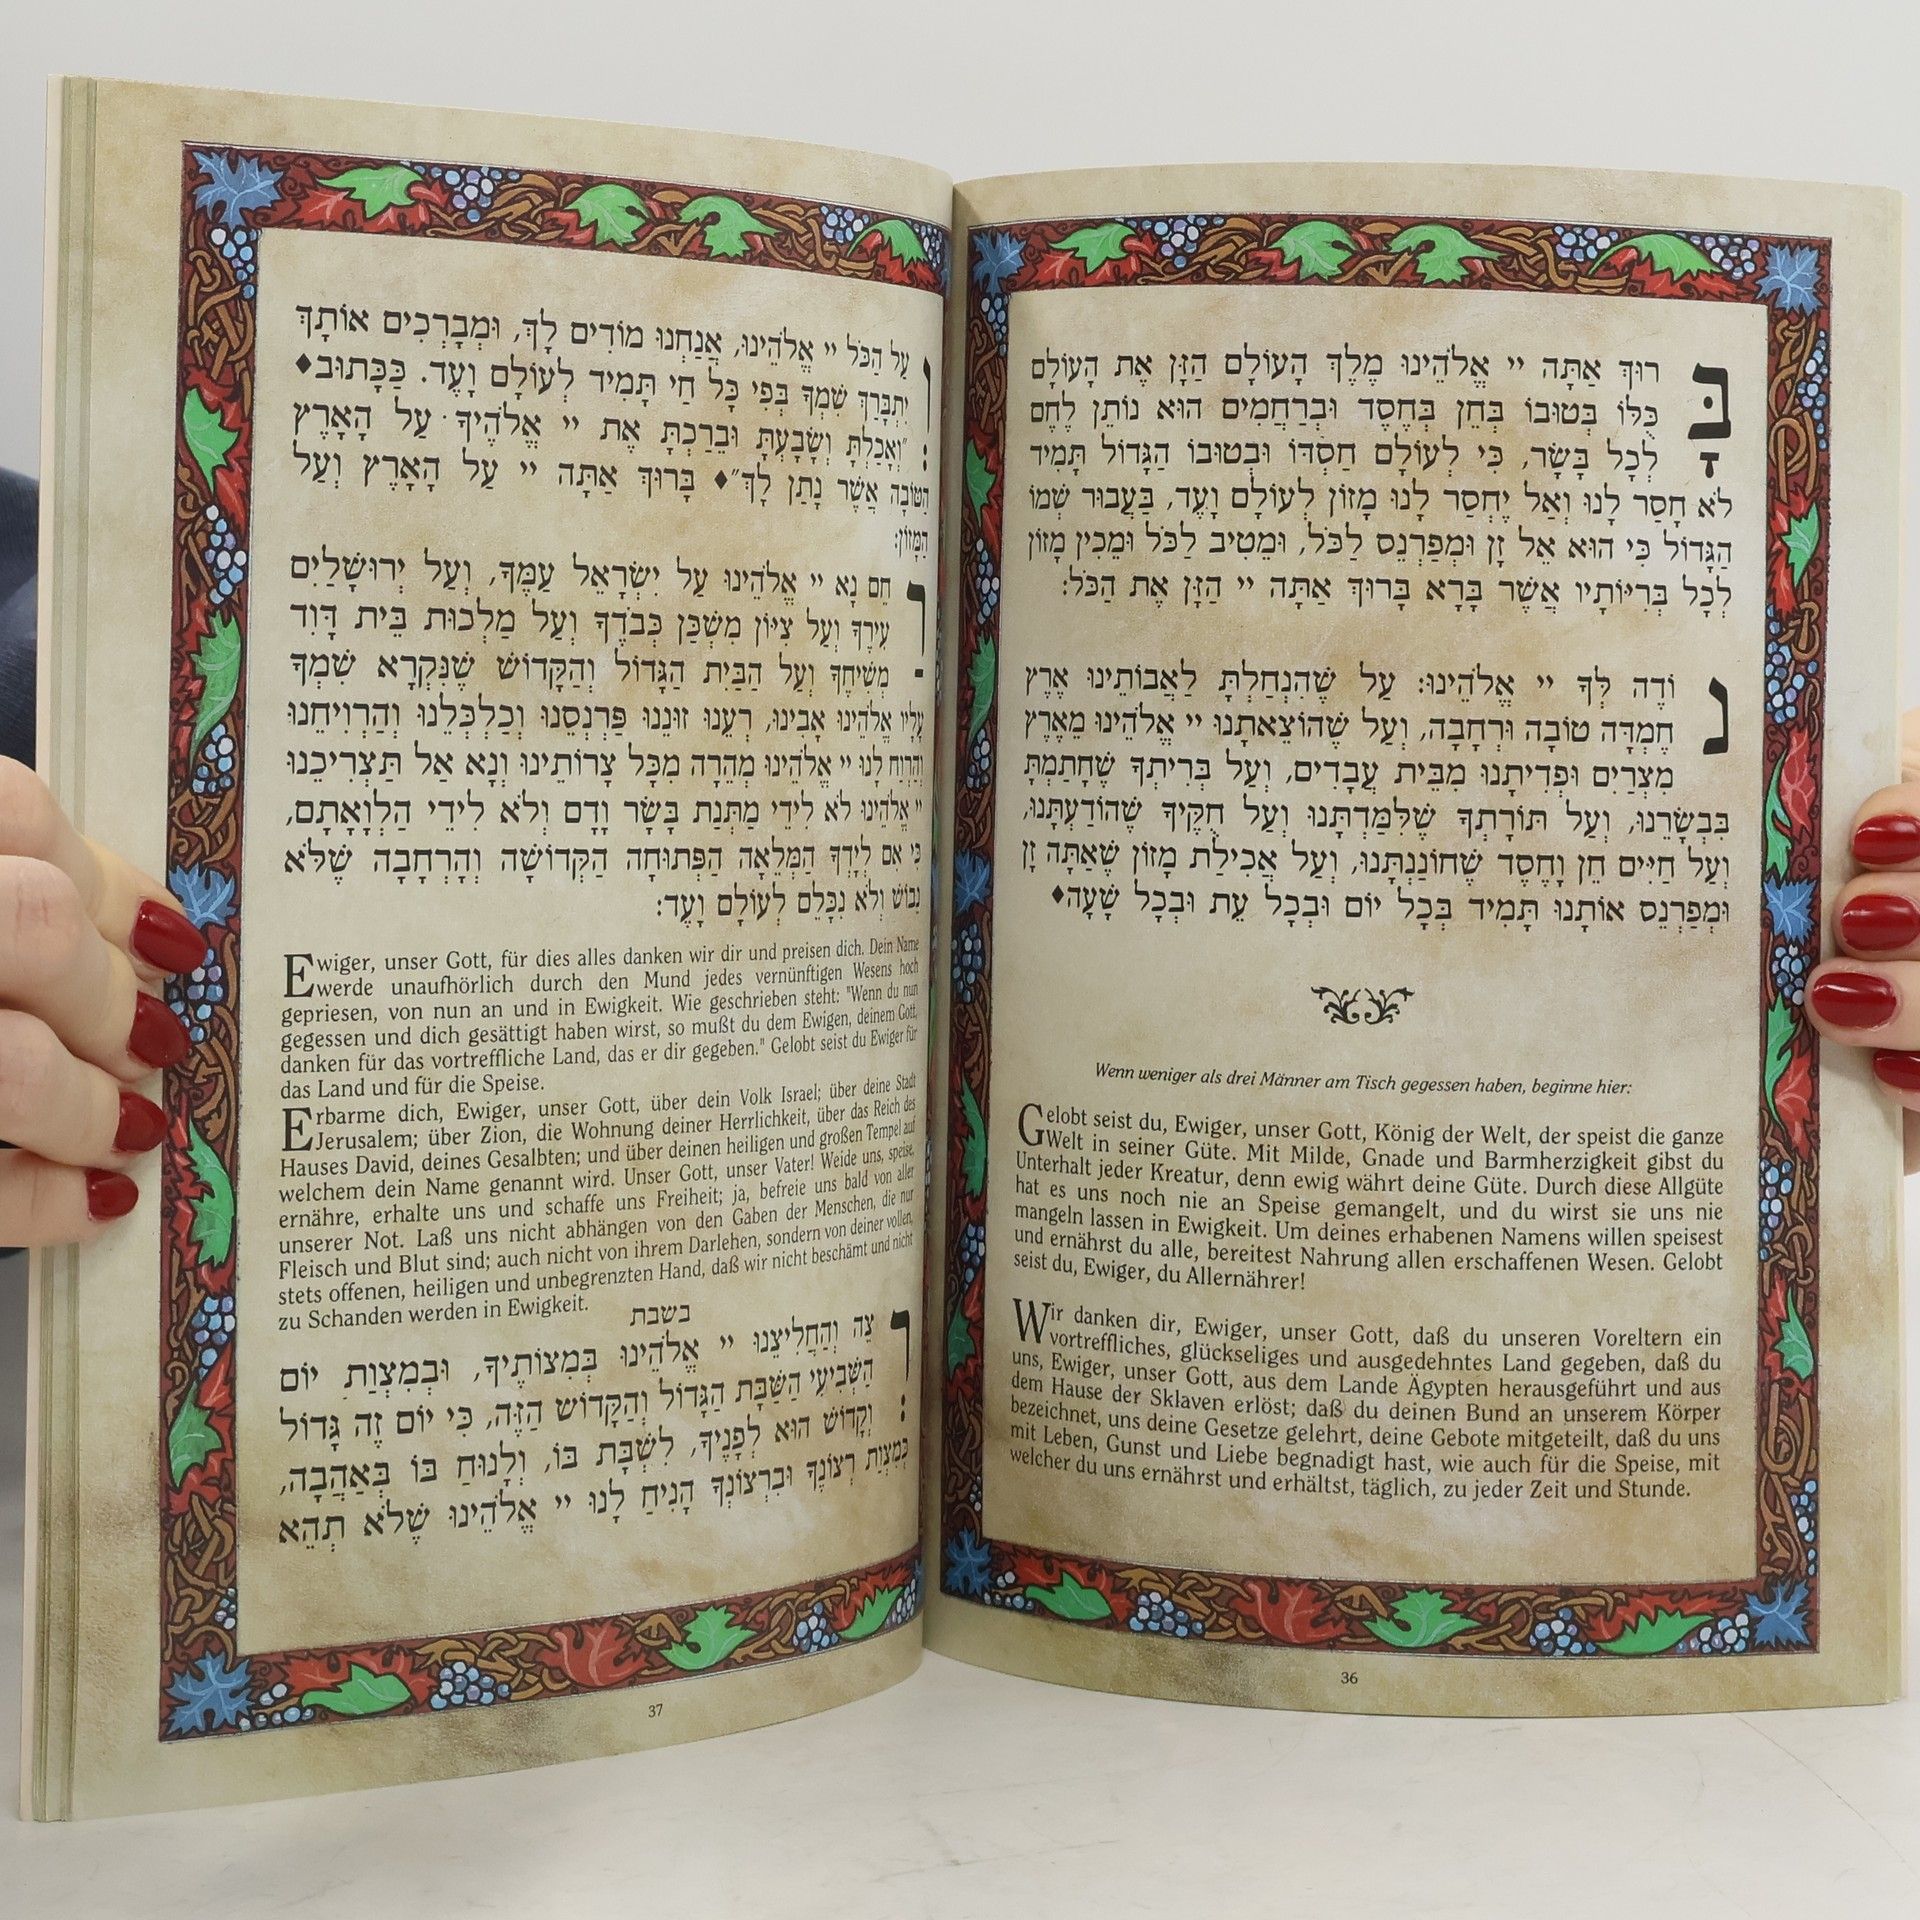 בָּרוּךְ אַתָּה יי אֱלֹהֵינוּ מֶלֶךְ הָעוֹלָם הַזָּן אֶת הָעוֹלָם
כֻּלּוֹ בְּטוּבוֹ בְּחֵן בְּחֶסֶד וּבְרַחֲמִים הוּא נוֹתֵן לֶחֶם
לְכָל בָּשָׂר, כִּי לְעוֹלָם חַסְדּוֹ וּבְטוּבוֹ הַגָּדוֹל תָּמִיד
לֹא חָסַר לָנוּ וְאַל יֶחְסַר לָנוּ מָזוֹן לְעוֹלָם וָעֶד, בַּעֲבוּר שְׁמוֹ
הַגָּדוֹל כִּי הוּא אֵל זָן וּמְפַרְנֵס לַכֹּל, וּמֵטִיב לַכֹּל וּמֵכִין מָזוֹן
לְכָל בְּרִיּוֹתָיו אֲשֶׁר בָּרָא בָּרוּךְ אַתָּה יי הַזָּן אֶת הַכֹּל:
נוֹדֶה לְּךָ יי אֱלֹהֵינוּ: עַל שֶׁהִנְחַלְתָּ לַאֲבוֹתֵינוּ אֶרֶץ
חֶמְדָּה טוֹבָה וּרְחָבָה, וְעַל שֶׁהוֹצֵאתָנוּ יי אֱלֹהֵינוּ מֵאֶרֶץ
מִצְרַיִם וּפְדִיתָנוּ מִבֵּית עֲבָדִים, וְעַל בְּרִיתְךָ שֶׁחָתַמְתָּ
בִּבְשָׂרֵנוּ, וְעַל תּוֹרָתְךָ שֶׁלִּמַּדְתָּנוּ וְעַל חֻקֶּיךָ שֶׁהוֹדַעְתָּנוּ,
וְעַל חַיִּים חֵן וָחֶסֶד שֶׁחוֹנַנְתָּנוּ, וְעַל אֲכִילַת מָזוֹן שָׁאַתָּה זָן
וּמְפַרְנֵס אוֹתָנוּ תָּמִיד בְּכָל יוֹם וּבְכָל עֵת וּבְכָל שָׁעָה♦
Wenn weniger als drei Männer am Tisch gegessen haben, beginne hier:
Gelobt seist du, Ewiger, unser Gott, König der Welt, der speist die ganze
Welt in seiner Güte. Mit Milde, Gnade und Barmherzigkeit gibst du
Unterhalt jeder Kreatur, denn ewig währt deine Güte. Durch diese Allgüte
hat es uns noch nie an Speise gemangelt, und du wirst sie uns nie
mangeln lassen in Ewigkeit. Um deines erhabenen Namens willen speisest
und ernährst du alle, bereitest Nahrung allen erschaffenen Wesen. Gelobt
seist du, Ewiger, du Allernährer!
Wir danken dir, Ewiger, unser Gott, daß du unseren Voreltern ein
vortreffliches, glückseliges und ausgedehntes Land gegeben, daß du
uns, Ewiger, unser Gott, aus dem Lande Ägypten herausgeführt und aus
dem Hause der Sklaven erlöst; daß du deinen Bund an unserem Körper
bezeichnet, uns deine Gesetze gelehrt, deine Gebote mitgeteilt, daß du uns
mit Leben, Gunst und Liebe begnadigt hast, wie auch für die Speise, mit
welcher du uns ernährst und erhältst, täglich, zu jeder Zeit und Stunde.
36
וְעַל הַכֹּל יי אֱלֹהֵינוּ, אֲנַחְנוּ מוֹדִים לָךְ, וּמְבָרְכִים אוֹתָךְ
יִתְבָּרַךְ שִׁמְךָ בְּפִי כָּל חַי תָּמִיד לְעוֹלָם וָעֶד. כַּכָּתוּב♦
״וְאָכַלְתָּ וְשָׂבָעְתָּ וּבֵרַכְתָּ אֶת יי אֱלֹהֶיךָ עַל הָאָרֶץ
הַטּוֹבָה אֲשֶׁר נָתַן לָךְ״♦ בָּרוּךְ אַתָּה יי עַל הָאָרֶץ וְעַל
הַמָּזוֹן:
רַחֵם נָא יי אֱלֹהֵינוּ עַל יִשְׂרָאֵל עַמֶּךָ, וְעַל יְרוּשָׁלַיִם
עִירֶךָ וְעַל צִיּוֹן מִשְׁכַּן כְּבֹדֶךָ וְעַל מַלְכוּת בֵּית דָּוִד
מְשִׁיחֶךָ וְעַל הַבַּיִת הַגָּדוֹל וְהַקָּדוֹשׁ שֶׁנִּקְרָא שִׁמְךָ
עָלָיו אֱלֹהֵינוּ אָבִינוּ, רְעֵנוּ זוּנֵנוּ פַּרְנְסֵנוּ וְכַלְכְּלֵנוּ וְהַרְוִיחֵנוּ
וְהַרְוַח לָנוּ יי אֱלֹהֵינוּ מְהֵרָה מִכָּל צָרוֹתֵינוּ וְנָא אַל תַּצְרִיכֵנוּ
יי אֱלֹהֵינוּ לֹא לִידֵי מַתְּנַת בָּשָׂר וָדָם וְלֹא לִידֵי הַלְוָאָתָם,
כִּי אִם לְיָדְךָ הַמְּלֵאָה הַפְּתוּחָה הַקְּדוֹשָׁה וְהָרְחָבָה שֶׁלֹּא
נֵבוֹשׁ וְלֹא נִכָּלֵם לְעוֹלָם וָעֶד:
Ewiger, unser Gott, für dies alles danken wir dir und preisen dich. Dein Name
werde unaufhörlich durch den Mund jedes vernünftigen Wesens hoch
gepriesen, von nun an und in Ewigkeit. Wie geschrieben steht: "Wenn du nun
gegessen und dich gesättigt haben wirst, so mußt du dem Ewigen, deinem Gott,
danken für das vortreffliche Land, das er dir gegeben." Gelobt seist du Ewiger für
das Land und für die Speise.
Erbarme dich, Ewiger, unser Gott, über dein Volk Israel; über deine Stadt
Jerusalem; über Zion, die Wohnung deiner Herrlichkeit, über das Reich des
Hauses David, deines Gesalbten; und über deinen heiligen und großen Tempel auf
welchem dein Name genannt wird. Unser Gott, unser Vater! Weide uns, speise,
ernähre, erhalte uns und schaffe uns Freiheit; ja, befreie uns bald von aller
unserer Not. Laß uns nicht abhängen von den Gaben der Menschen, die nur
Fleisch und Blut sind; auch nicht von ihrem Darlehen, sondern von deiner vollen,
stets offenen, heiligen und unbegrenzten Hand, daß wir nicht beschämt und nicht
zu Schanden werden in Ewigkeit.
בשבת
רְצֵה וְהַחֲלִיצֵנוּ יי אֱלֹהֵינוּ בְּמִצוֹתֶיךָ, וּבְמִצְוַת יוֹם
הַשְּׁבִיעִי הַשַּׁבָּת הַגָּדוֹל וְהַקָּדוֹשׁ הַזֶּה, כִּי יוֹם זֶה גָּדוֹל
וְקָדוֹשׁ הוּא לְפָנֶיךָ, לִשְׁבָּת בּוֹ, וְלָנוּחַ בּוֹ בְּאַהֲבָה,
כְּמִצְוַת רְצוֹנֶךָ וּבִרְצוֹנְךָ הָנִיחַ לָנוּ יי אֱלֹהֵינוּ שֶׁלֹּא תְהֵא
37